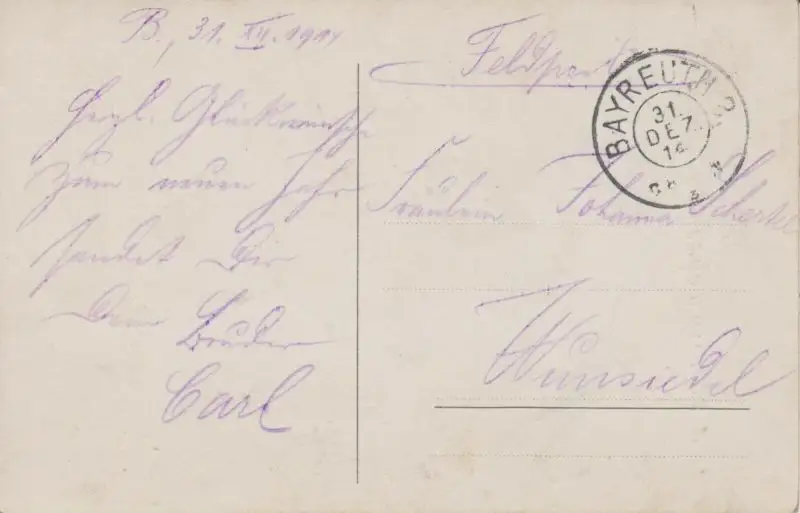 B., 31. XII. 1914
Herzl. Glückwünsche
zum neuen Jahr
sendet Dir
Dein Bruder
Carl
Feldpost
BAYREUTH 2.
31
DEZ.
14
Fräulein Johanna
Wunsiedel